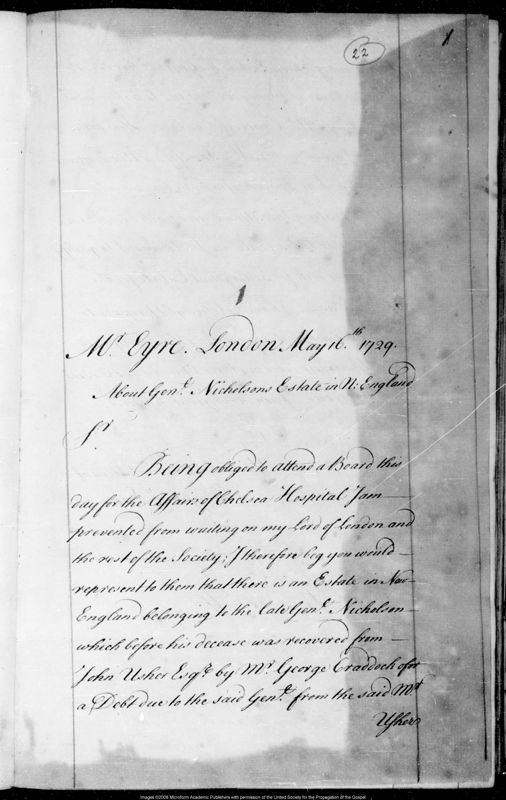 22
1
1
Mr Eyre. London May 16.th 1729.
About Genl. Nicholsons Estate in N: England
Sr
Being obliged to attend a Board this
day for the Affairs of Chelsea Hospital I am
prevented from waiting on my Lord of London and
the rest of the Society; I therefore beg you would
represent to them that there is an Estate in New
England belonging to the late Genl. Nicholson
which before his decease was recovered from
John Usher Esqr. by Mr. George Craddock for
a Debt due to the said Genl. from the said Mr
Usher
Images ©2008 Microform Academic Publishers with permission of the United Society for the Propagation of the Gospel